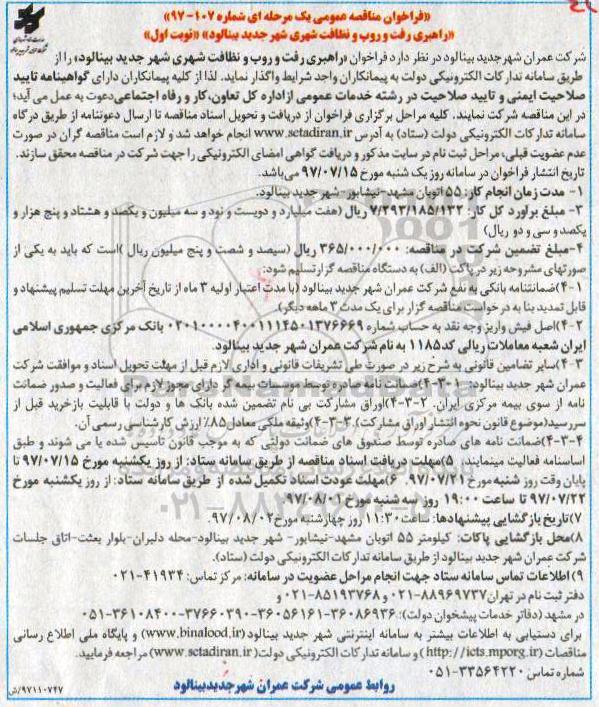 «فراخوان مناقصه عمومی یک مرحله ای شماره ۱۰۷-۹۷»
«راهبری رفت و روب و نظافت شهری شهر جدید بینالود» «نوبت اول»
شرکت عمران شهر جدید بینالود در نظر دارد فراخوان «راهبری رفت و روب و نظافت شهری شهر جدید بینالود» را از
طریق سامانه تدارکات الکترونیکی دولت به پیمانکاران واجد شرایط واگذار نماید. لذا از کلیه پیمانکاران دارای گواهینامه تایید
صلاحیت ایمنی و تایید صلاحیت در رشته خدمات عمومی از اداره کل تعاون، کار و رفاه اجتماعی دعوت به عمل می آید؛
در این مناقصه شرکت نمایند. کلیه مراحل برگزاری فراخوان از دریافت و تحویل اسناد مناقصه تا ارسال دعوتنامه از طریق درگاه
سامانه تدارکات الکترونیکی دولت (ستاد) به آدرس www.setadiran.ir انجام خواهد شد و لازم است مناقصه گران در صورت
عدم عضویت قبلی، مراحل ثبت نام در سایت مذکور و دریافت گواهی امضای الکترونیکی را جهت شرکت در مناقصه محقق سازند.
تاریخ انتشار فراخوان در سامانه روز یک شنبه مورخ ۹۷/۰۷/۱۵ می‌باشد.
۱- مدت زمان انجام کار: ۵۵ اتوبان مشهد-نیشابور- شهر جدید بینالود.
۳- مبلغ برآورد کل کار: ۷/۲۹۳/۱۸۵/۱۳۲ ریال (هفت میلیارد و دویست و نود و سه میلیون و یکصد و هشتاد و پنج هزار و
یکصد و سی و دو ریال)
۴-مبلغ تضمین شرکت در مناقصه: ۳۶۵/۰۰۰/۰۰۰ ریال (سیصد و شصت و پنج میلیون ریال) است که باید به یکی از
صورتهای مشروحه زیر در پاکت (الف) به دستگاه مناقصه گزار تسلیم شود:
۴-۱)ضمانتنامه بانکی به نفع شرکت عمران شهر جدید بینالود (با مدت اعتبار اولیه ۳ ماه از تاریخ آخرین مهلت تسلیم پیشنهاد و
قابل تمدید بنا به درخواست مناقصه گزار برای یک مدت ۳ ماهه دیگر).
۴-۲)اصل فیش واریز وجه نقد به حساب شماره ۰۲۰۱۰۰۰۰۴۰۰۱۱۱۴۵۰۱۳۷۶۶۶۹ بانک مرکزی جمهوری اسلامی
ایران شعبه معاملات ریالی کد ۱۱۸۵ به نام شرکت عمران شهر جدید بینالود.
۴-۳)سایر تضامین قانونی به شرح زیر در صورت طی تشریفات قانونی و اداری لازم قبل از مهلت تحویل اسناد و موافقت شرکت
عمران شهر جدید بینالود: ۴-۳-۱)ضمانت نامه صادره توسط موسسات بیمه گر دارای مجوز لازم برای فعالیت و صدور ضمانت
نامه از سوی بیمه مرکزی ایران. ۴-۳-۲)اوراق مشارکت بی نام تضمین شده بانک ها و دولت با قابلیت بازخرید قبل از
سررسید(موضوع قانون نحوه انتشار اوراق مشارکت). ۴-۳-۳)وثیقه ملکی معادل ۸۵٪ ارزش کارشناسی رسمی آن.
۴-۳-۴)ضمانت نامه های صادره توسط صندوق های ضمانت دولتی که به موجب قانون تاسیس شده یا می شوند و طبق
اساسنامه فعالیت مینمایند. ۵)مهلت دریافت اسناد مناقصه از طریق سامانه ستاد: از روز یکشنبه مورخ ۹۷/۰۷/۱۵ تا
پایان وقت روز شنبه مورخ ۹۷/۰۷/۲۱. ۶)مهلت عودت اسناد تکمیل شده از طریق سامانه ستاد: از روز یکشنبه مورخ
۹۷/۰۷/۲۲ تا ساعت ۱۹:۰۰ روز سه شنبه مورخ ۹۷/۰۸/۰۱.
۷)تاریخ بازگشایی پیشنهادها: ساعت ۱۱:۳۰ روز چهارشنبه مورخ ۹۷/۰۸/۰۲.
۸)محل بازگشایی پاکات: کیلومتر ۵۵ اتوبان مشهد-نیشابور- شهر جدید بینالود-محله دلبران-بلوار بعثت-اتاق جلسات
شرکت عمران شهر جدید بینالود از طریق سامانه تدارکات الکترونیکی دولت (ستاد).
۹)اطلاعات تماس سامانه ستاد جهت انجام مراحل عضویت در سامانه: مرکز تماس: ۴۱۹۳۴-۰۲۱
دفتر ثبت نام در تهران ۸۸۹۶۹۷۳۷-۰۲۱ و ۸۵۱۹۳۷۶۸-۰۲۱ و
در مشهد (دفاتر خدمات پیشخوان دولت): ۳۶۰۸۶۹۳۶-۳۶۰۵۶۱۶۱-۳۷۶۶۰۳۹۰-۳۶۱۰۸۴۰۰-۰۵۱
برای دستیابی به اطلاعات بیشتر به سامانه اینترنتی شهر جدید بینالود (www.binalood.ir) و پایگاه ملی اطلاع رسانی
مناقصات (http://iets.mporg.ir) و سامانه تدارکات الکترونیکی دولت (www.setadiran.ir) مراجعه فرمایید.
شماره تماس ۳۳۵۶۴۲۲۰-۰۵۱
روابط عمومی شرکت عمران شهر جدید بینالود
۹۷۱۱۰۷۴۷/ش